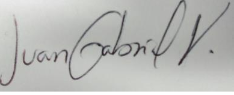 Juan Gabriel V.